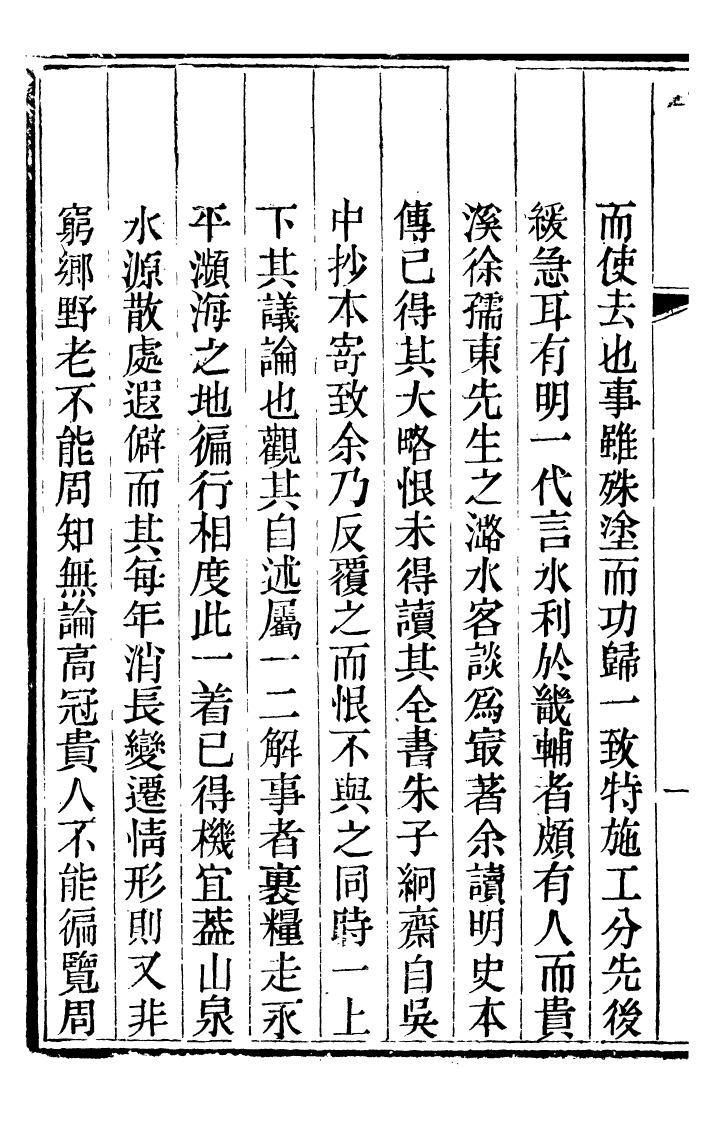 而使去也事雖殊塗而功歸一致特施工分先後
緩急耳有明一代言水利於畿輔者頗有人而貴
溪徐孺東先生之潞水客談爲冣著余讀明史本
傳已得其大略恨未得讀其全書朱子絅齋自吳
中抄本寄致余乃反覆之而恨不與之同時一上
下其議論也觀其自述屬一二解事者裹糧走永
平瀕海之地徧行相度此一着已得機宜葢山泉
水源散處遐僻而其每年消長變遷情形則又非
窮鄉野老不能周知無論高冠貴人不能徧覽周
一